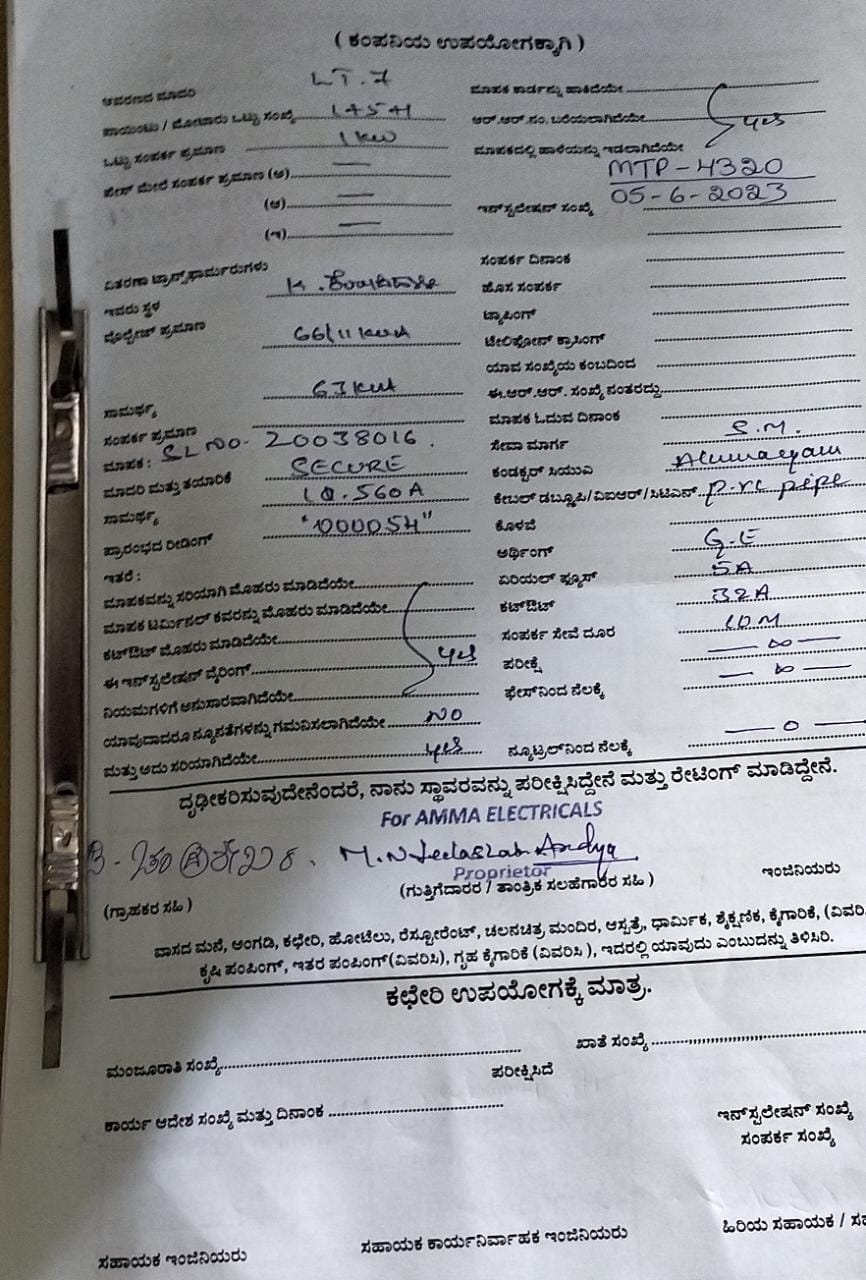 ( ಕಂಪನಿಯ ಉಪಯೋಗಕ್ಕಾಗಿ )
ಆವರಣದ ಮಾದರಿ LT.7
ಪಾಯಿಂಟು / ಮೋಟಾರು ಒಟ್ಟು ಸಂಖ್ಯೆ
ಒಟ್ಟು ಸಂಪರ್ಕ ಪ್ರಮಾಣ 1 KW
ಫೇಸ್ ಮೇಲೆ ಸಂಪರ್ಕ ಪ್ರಮಾಣ (ಅ) —
(ಆ) —
(ಇ) —
ವಿತರಣಾ ಟ್ರಾನ್ಸ್‌ಫಾರ್ಮರುಗಳು
ಇವರು ಸ್ಥಳ
ವೋಲ್ಟೇಜ್ ಪ್ರಮಾಣ
ಸಾಮರ್ಥ್ಯ
ಸಂಪರ್ಕ ಪ್ರಮಾಣ
ಮಾಪಕ : SL NO- 20038016.
ಮಾದರಿ ಮತ್ತು ತಯಾರಿಕೆ SECURE
ಸಾಮರ್ಥ್ಯ
ಪ್ರಾರಂಭದ ರೀಡಿಂಗ್
ಇತರೆ :
ಮಾಪಕವನ್ನು ಸರಿಯಾಗಿ ಮೊಹರು ಮಾಡಿದೆಯೇ
ಮಾಪಕ ಟರ್ಮಿನಲ್ ಕವರನ್ನು ಮೊಹರು ಮಾಡಿದೆಯೇ
ಕಟ್‌ಔಟ್ ಮೊಹರು ಮಾಡಿದೆಯೇ
ಈ ಇನ್‌ಸ್ಟಲೇಷನ್ ವೈರಿಂಗ್ yes
ನಿಯಮಗಳಿಗೆ ಅನುಸಾರವಾಗಿದೆಯೇ
ಯಾವುದಾದರೂ ನ್ಯೂನತೆಗಳನ್ನು ಗಮನಿಸಲಾಗಿದೆಯೇ NO
ಮತ್ತು ಅದು ಸರಿಯಾಗಿದೆಯೇ yes
ಮಾಪಕ ಕಾರ್ಡನ್ನು ಹಾಕಿದೆಯೇ
ಆರ್.ಆರ್.ನಂ. ಬರೆಯಲಾಗಿದೆಯೇ yes
ಮಾಪಕದಲ್ಲಿ ಹಾಳೆಯನ್ನು ಇಡಲಾಗಿದೆಯೇ
MTP-4320
ಇನ್‌ಸ್ಟಲೇಷನ್ ಸಂಖ್ಯೆ 05-6-2023
ಸಂಪರ್ಕ ದಿನಾಂಕ
ಹೊಸ ಸಂಪರ್ಕ
ಟ್ಯಾಪಿಂಗ್
ಟೆಲಿಫೋನ್ ಕ್ರಾಸಿಂಗ್
ಯಾವ ಸಂಖ್ಯೆಯ ಕಂಬದಿಂದ
ಈ.ಆರ್.ಆರ್. ಸಂಖ್ಯೆ ನಂತರದ್ದು
ಮಾಪಕ ಓದುವ ದಿನಾಂಕ
ಸೇವಾ ಮಾರ್ಗ S.M.
ಕಂಡಕ್ಟರ್ ಸಿಯುವಿ
ಕೇಬಲ್ ಡಬ್ಲೂಪಿ/ವಿಐಆರ್/ಸಿಟಿಎಸ್ p.vc pipe
ಕೊಳವೆ
ಅರ್ಥಿಂಗ್ G.E
ಏರಿಯಲ್ ಫ್ಯೂಸ್ 5A
ಕಟ್‌ಔಟ್ 32A
ಸಂಪರ್ಕ ಸೇವೆ ದೂರ 10M
ಪರೀಕ್ಷೆ
ಫೇಸ್‌ನಿಂದ ನೆಲಕ್ಕೆ
ನ್ಯೂಟ್ರಲ್‌ನಿಂದ ನೆಲಕ್ಕೆ — 0 —
ದೃಢೀಕರಿಸುವುದೇನೆಂದರೆ, ನಾನು ಸ್ಥಾವರವನ್ನು ಪರೀಕ್ಷಿಸಿದ್ದೇನೆ ಮತ್ತು ರೇಟಿಂಗ್ ಮಾಡಿದ್ದೇನೆ.
For AMMA ELECTRICALS
Proprietor
(ಗ್ರಾಹಕರ ಸಹಿ ) (ಗುತ್ತಿಗೆದಾರರ / ತಾಂತ್ರಿಕ ಸಲಹೆಗಾರರ ಸಹಿ ) ಇಂಜಿನಿಯರು
ವಾಸದ ಮನೆ, ಅಂಗಡಿ, ಕಛೇರಿ, ಹೋಟೆಲು, ರೆಸ್ಟೋರೆಂಟ್, ಚಲನಚಿತ್ರ ಮಂದಿರ, ಆಸ್ಪತ್ರೆ, ಧಾರ್ಮಿಕ, ಶೈಕ್ಷಣಿಕ, ಕೈಗಾರಿಕೆ, (ವಿವರಿ
ಕೃಷಿ ಪಂಪಿಂಗ್, ಇತರ ಪಂಪಿಂಗ್(ವಿವರಿಸಿ), ಗೃಹ ಕೈಗಾರಿಕೆ (ವಿವರಿಸಿ ), ಇದರಲ್ಲಿ ಯಾವುದು ಎಂಬುದನ್ನು ತಿಳಿಸಿರಿ.
ಕಛೇರಿ ಉಪಯೋಗಕ್ಕೆ ಮಾತ್ರ.
ಮಂಜೂರಾತಿ ಸಂಖ್ಯೆ ಖಾತೆ ಸಂಖ್ಯೆ
ಪರೀಕ್ಷಿಸಿದೆ
ಕಾರ್ಯ ಆದೇಶ ಸಂಖ್ಯೆ ಮತ್ತು ದಿನಾಂಕ ಇನ್‌ಸ್ಪಲೇಷನ್ ಸಂಖ್ಯೆ
ಸಂಪರ್ಕ ಸಂಖ್ಯೆ
ಸಹಾಯಕ ಇಂಜಿನಿಯರು ಸಹಾಯಕ ಕಾರ್ಯನಿರ್ವಾಹಕ ಇಂಜಿನಿಯರು ಹಿರಿಯ ಸಹಾಯಕ / ಸಹ